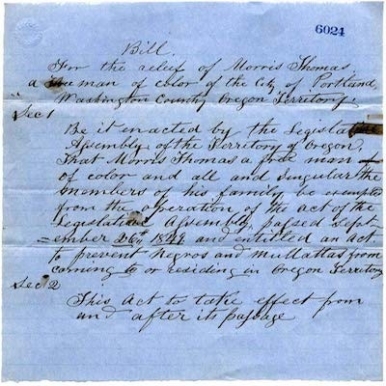 6024
Bill.
For the relief of Morris Thomas
a free man of color of the City of Portland,
Washington County Oregon Territory.
Sec 1
Be it enacted by the Legislative
Assembly of the Territory of Oregon,
That Morris Thomas a free man
of color and all and singular the
members of his family, be exempted
from the operation of the act of the
Legislative Assembly, passed Sept-
ember 26th 1849 and entitled an act
to prevent Negros and Mullattas from
coming to or residing in Oregon Territory
Sec 2
This Act to take effect from
and after its passage